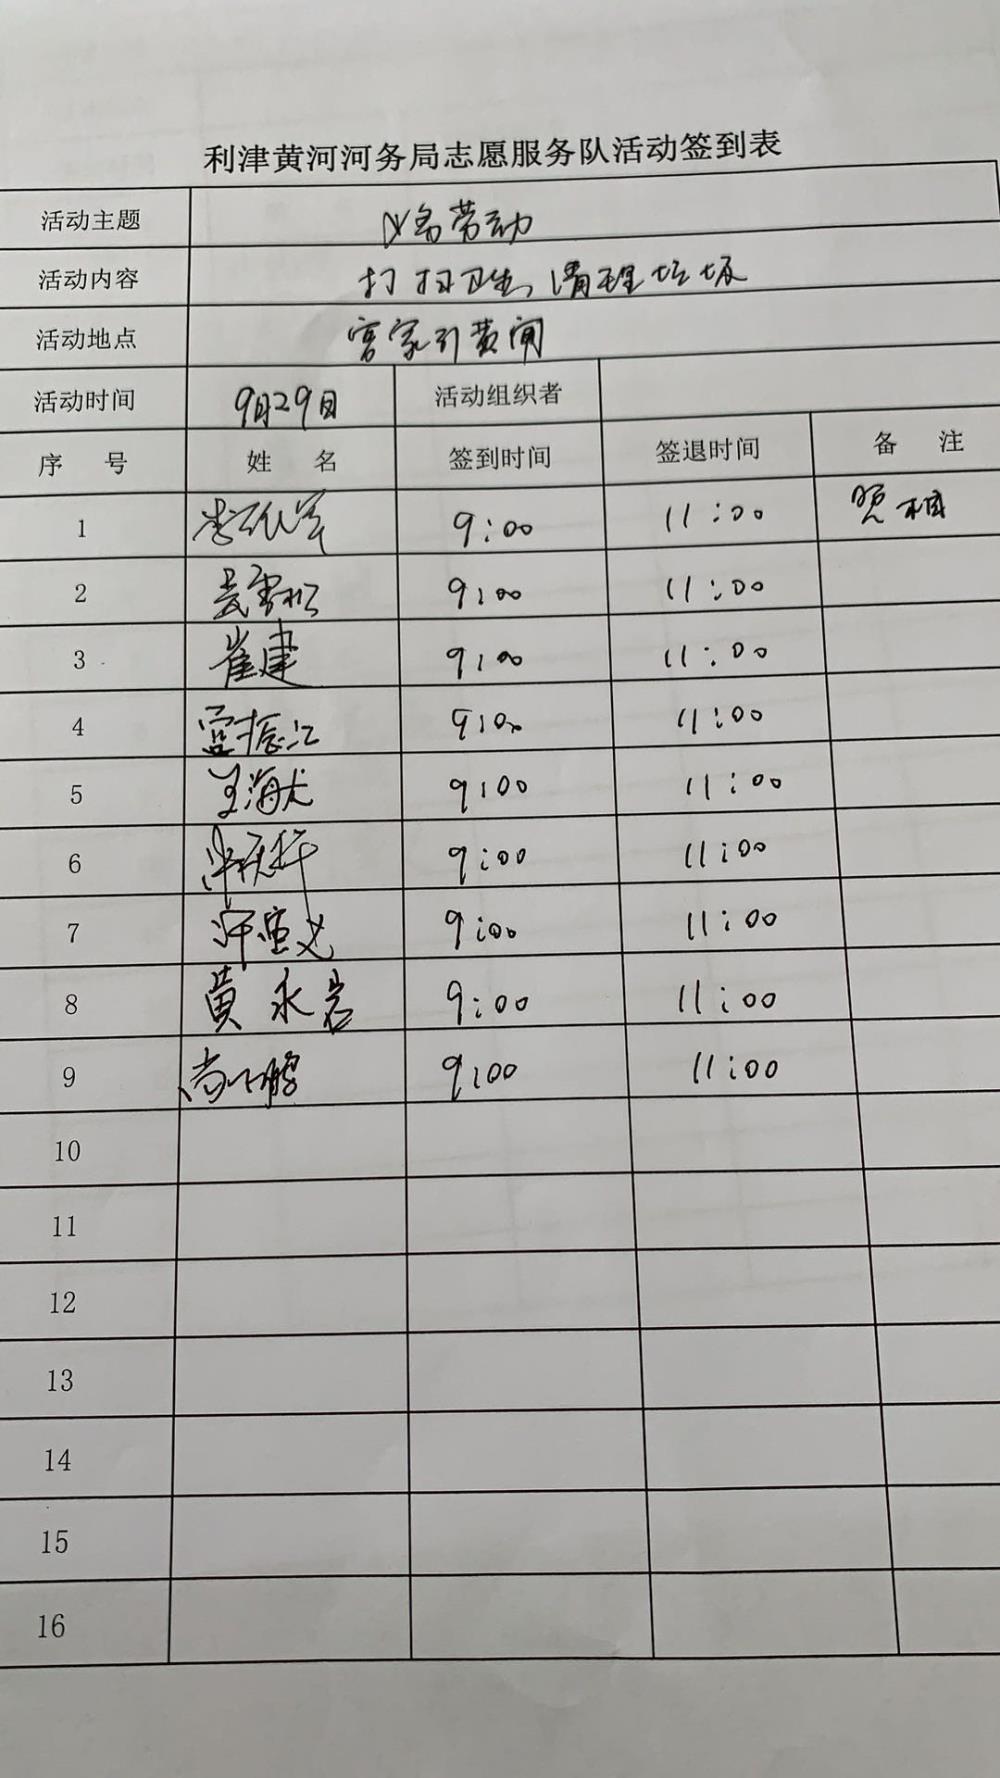 利津黄河河务局志愿服务队活动签到表
活动主题 义务劳动
活动内容 打扫卫生、清理垃圾
活动地点 宫家引黄闸
活动时间 9月29日 活动组织者
序 号 姓 名 签到时间 签退时间 备 注
1 9:00 11:00 照相
2 9:00 11:00
3 崔建 9:00 11:00
4 宫振江 9:00 11:00
5 王海龙 9:00 11:00
6 9:00 11:00
7 9:00 11:00
8 黄永岩 9:00 11:00
9 9:00 11:00
10
11
12
13
14
15
16